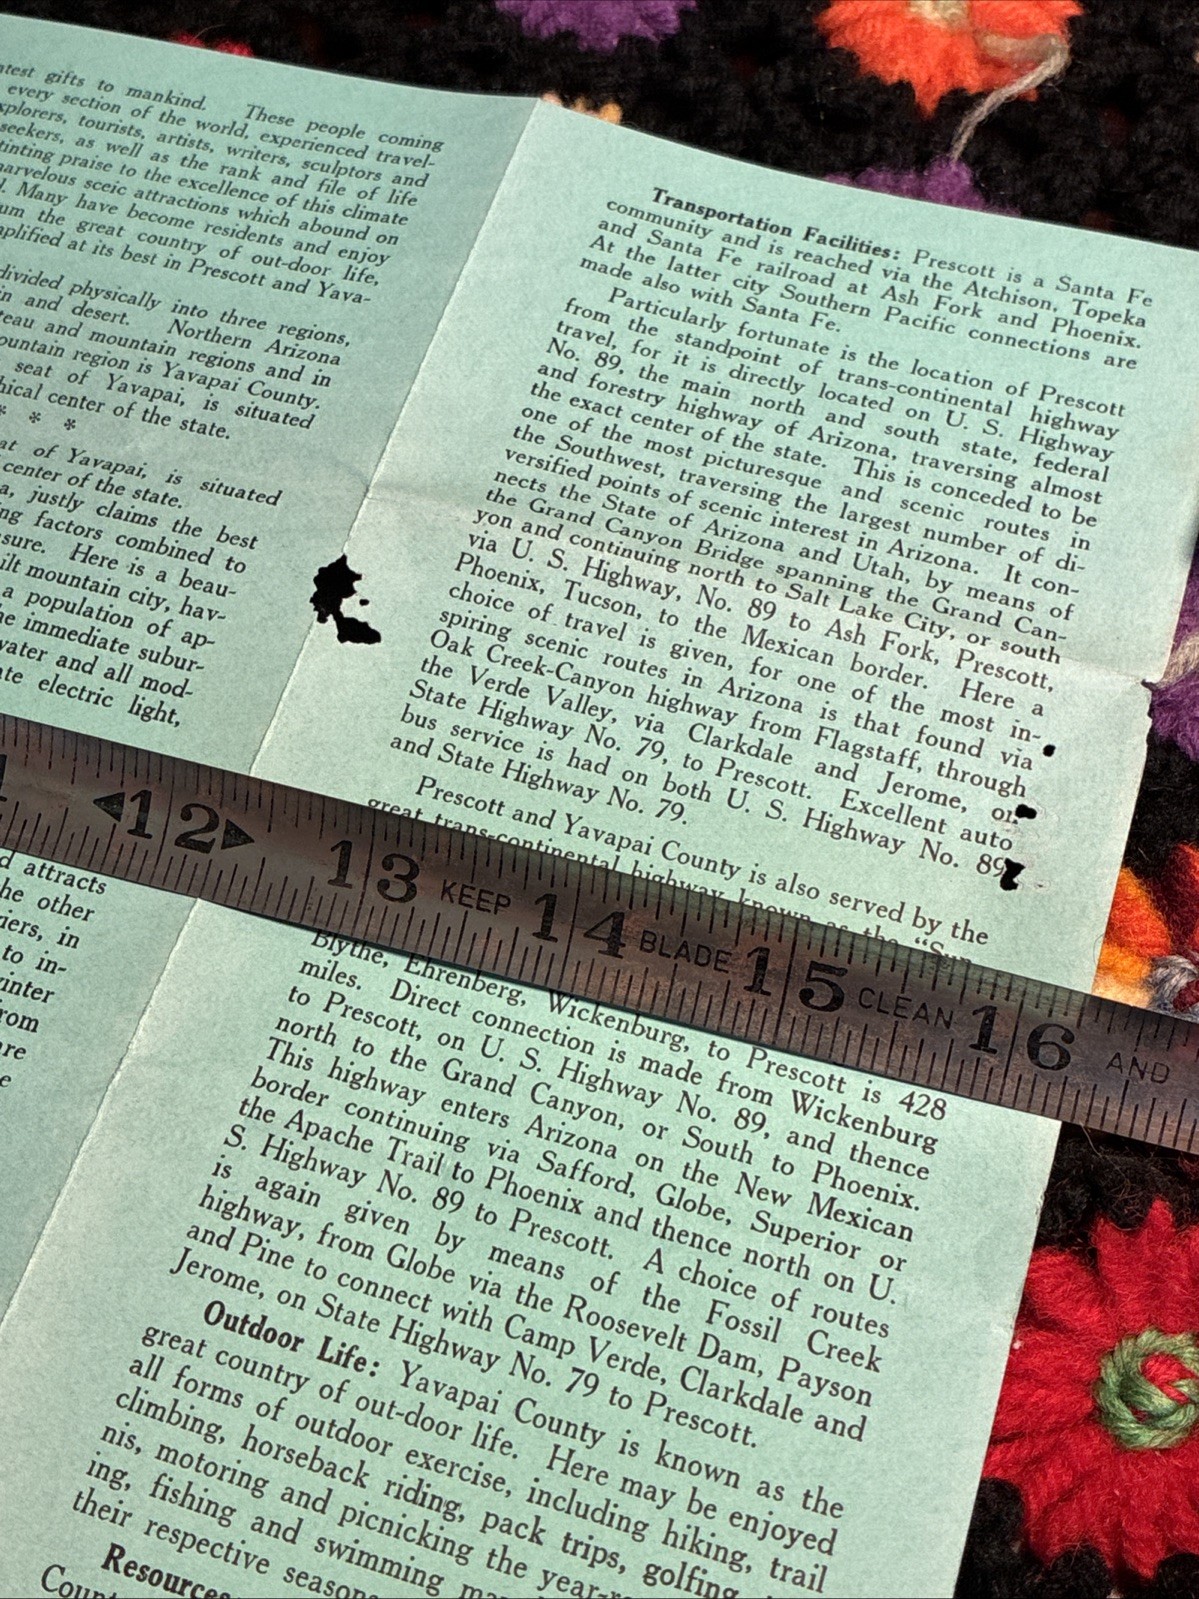 gifts to mankind. These people coming
every section of the world, experienced travel-
tourists, artists, writers, sculptors and
seekers, as well as the rank and file of life
praise to the excellence of this climate
sceic attractions which abound on
Many have become residents and enjoy
the great country of out-door life,
at its best in Prescott and Yava-
divided physically into three regions,
and desert. Northern Arizona
and mountain regions and in
region is Yavapai County.
seat of Yavapai, is situated
center of the state.
* * *
of Yavapai, is situated
center of the state.
justly claims the best
factors combined to
Here is a beau-
mountain city, hav-
a population of ap-
immediate subur-
and all mod-
electric light,
attracts
other
in
to in-
Transportation Facilities: Prescott is a Santa Fe
community and is reached via the Atchison, Topeka
and Santa Fe railroad at Ash Fork and Phoenix.
At the latter city Southern Pacific connections are
made also with Santa Fe.
Particularly fortunate is the location of Prescott
from the standpoint of trans-continental highway
travel, for it is directly located on U. S. Highway
No. 89, the main north and south state, federal
and forestry highway of Arizona, traversing almost
the exact center of the state. This is conceded to be
one of the most picturesque and scenic routes in
the Southwest, traversing the largest number of di-
versified points of scenic interest in Arizona. It con-
nects the State of Arizona and Utah, by means of
the Grand Canyon Bridge spanning the Grand Can-
yon and continuing north to Salt Lake City, or south
via U. S. Highway, No. 89 to Ash Fork, Prescott,
Phoenix, Tucson, to the Mexican border. Here a
choice of travel is given, for one of the most in-
spiring scenic routes in Arizona is that found via
Oak Creek-Canyon highway from Flagstaff, through
the Verde Valley, via Clarkdale and Jerome, on
State Highway No. 79, to Prescott. Excellent auto
bus service is had on both U. S. Highway No. 89
and State Highway No. 79.
Prescott and Yavapai County is also served by the
great trans-continental highway known as the "Sun
12 12 13 KEEP 14 BLADE 15 CLEAN 16 AND
Blythe, Ehrenberg, Wickenburg, to Prescott is 428
miles. Direct connection is made from Wickenburg
to Prescott, on U. S. Highway No. 89, and thence
north to the Grand Canyon, or South to Phoenix.
This highway enters Arizona on the New Mexican
border continuing via Safford, Globe, Superior or
the Apache Trail to Phoenix and thence north on U.
S. Highway No. 89 to Prescott. A choice of routes
is again given by means of the Fossil Creek
highway, from Globe via the Roosevelt Dam, Payson
and Pine to connect with Camp Verde, Clarkdale and
Jerome, on State Highway No. 79 to Prescott.
Outdoor Life: Yavapai County is known as the
great country of out-door life. Here may be enjoyed
all forms of outdoor exercise, including hiking, trail
climbing, horseback riding, pack trips, golfing,
nis, motoring and picnicking the
ing, fishing and swimming
their respective
Resources